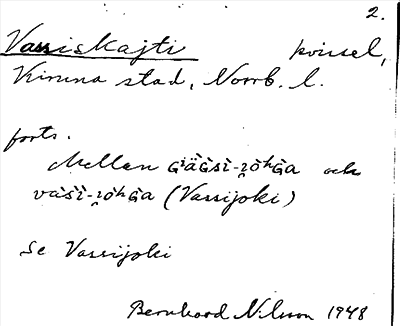 2.
Vassiskajti kvissel,
Kiruna stad, Norrb. l.
forts.
Mellan och
(Vassijoki)
Se Vassijoki
Bernhard Nilsson 1948